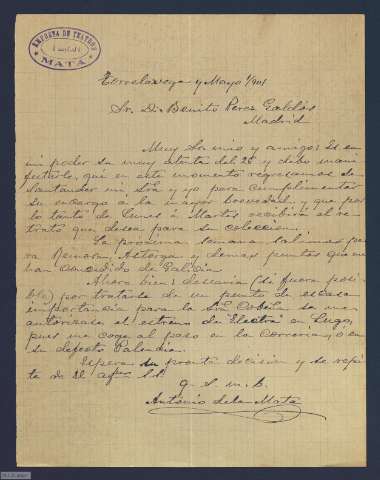 EMPRESA DE TEATROS
MATA
Torrelavega y Mayo 1/901
Sr. Dn. Benito Perez Galdós
Madrid
Muy Sr. mio y amigo: Es en
mi poder su muy atenta del 28 y debo mani
festarle, que en este momento regresamos de
Santander mi Sra. y yo para cumplimentar
su encargo a la mayor brevedad y que por
lo tanto de Lunes á Martes recibirá el re-
trato que desea para su coleccion.
La proxima semana salimos pa-
ra Reinosa, Astorga y demas puntos que me
han concedido de Galicia.
Ahora bien: desearia (si fuera posi-
ble) por tratarse de un punto de escasa
importancia para la Sra. Cobeña se me
autorizase el estreno de "Electra" en Lugo,
pues me coge al paso en la correria, ó en
su defecto Palencia.
Espera su pronta decision y se repi-
te de V. afmo. S.S.
q. s. m. b.
Antonio de la Mata